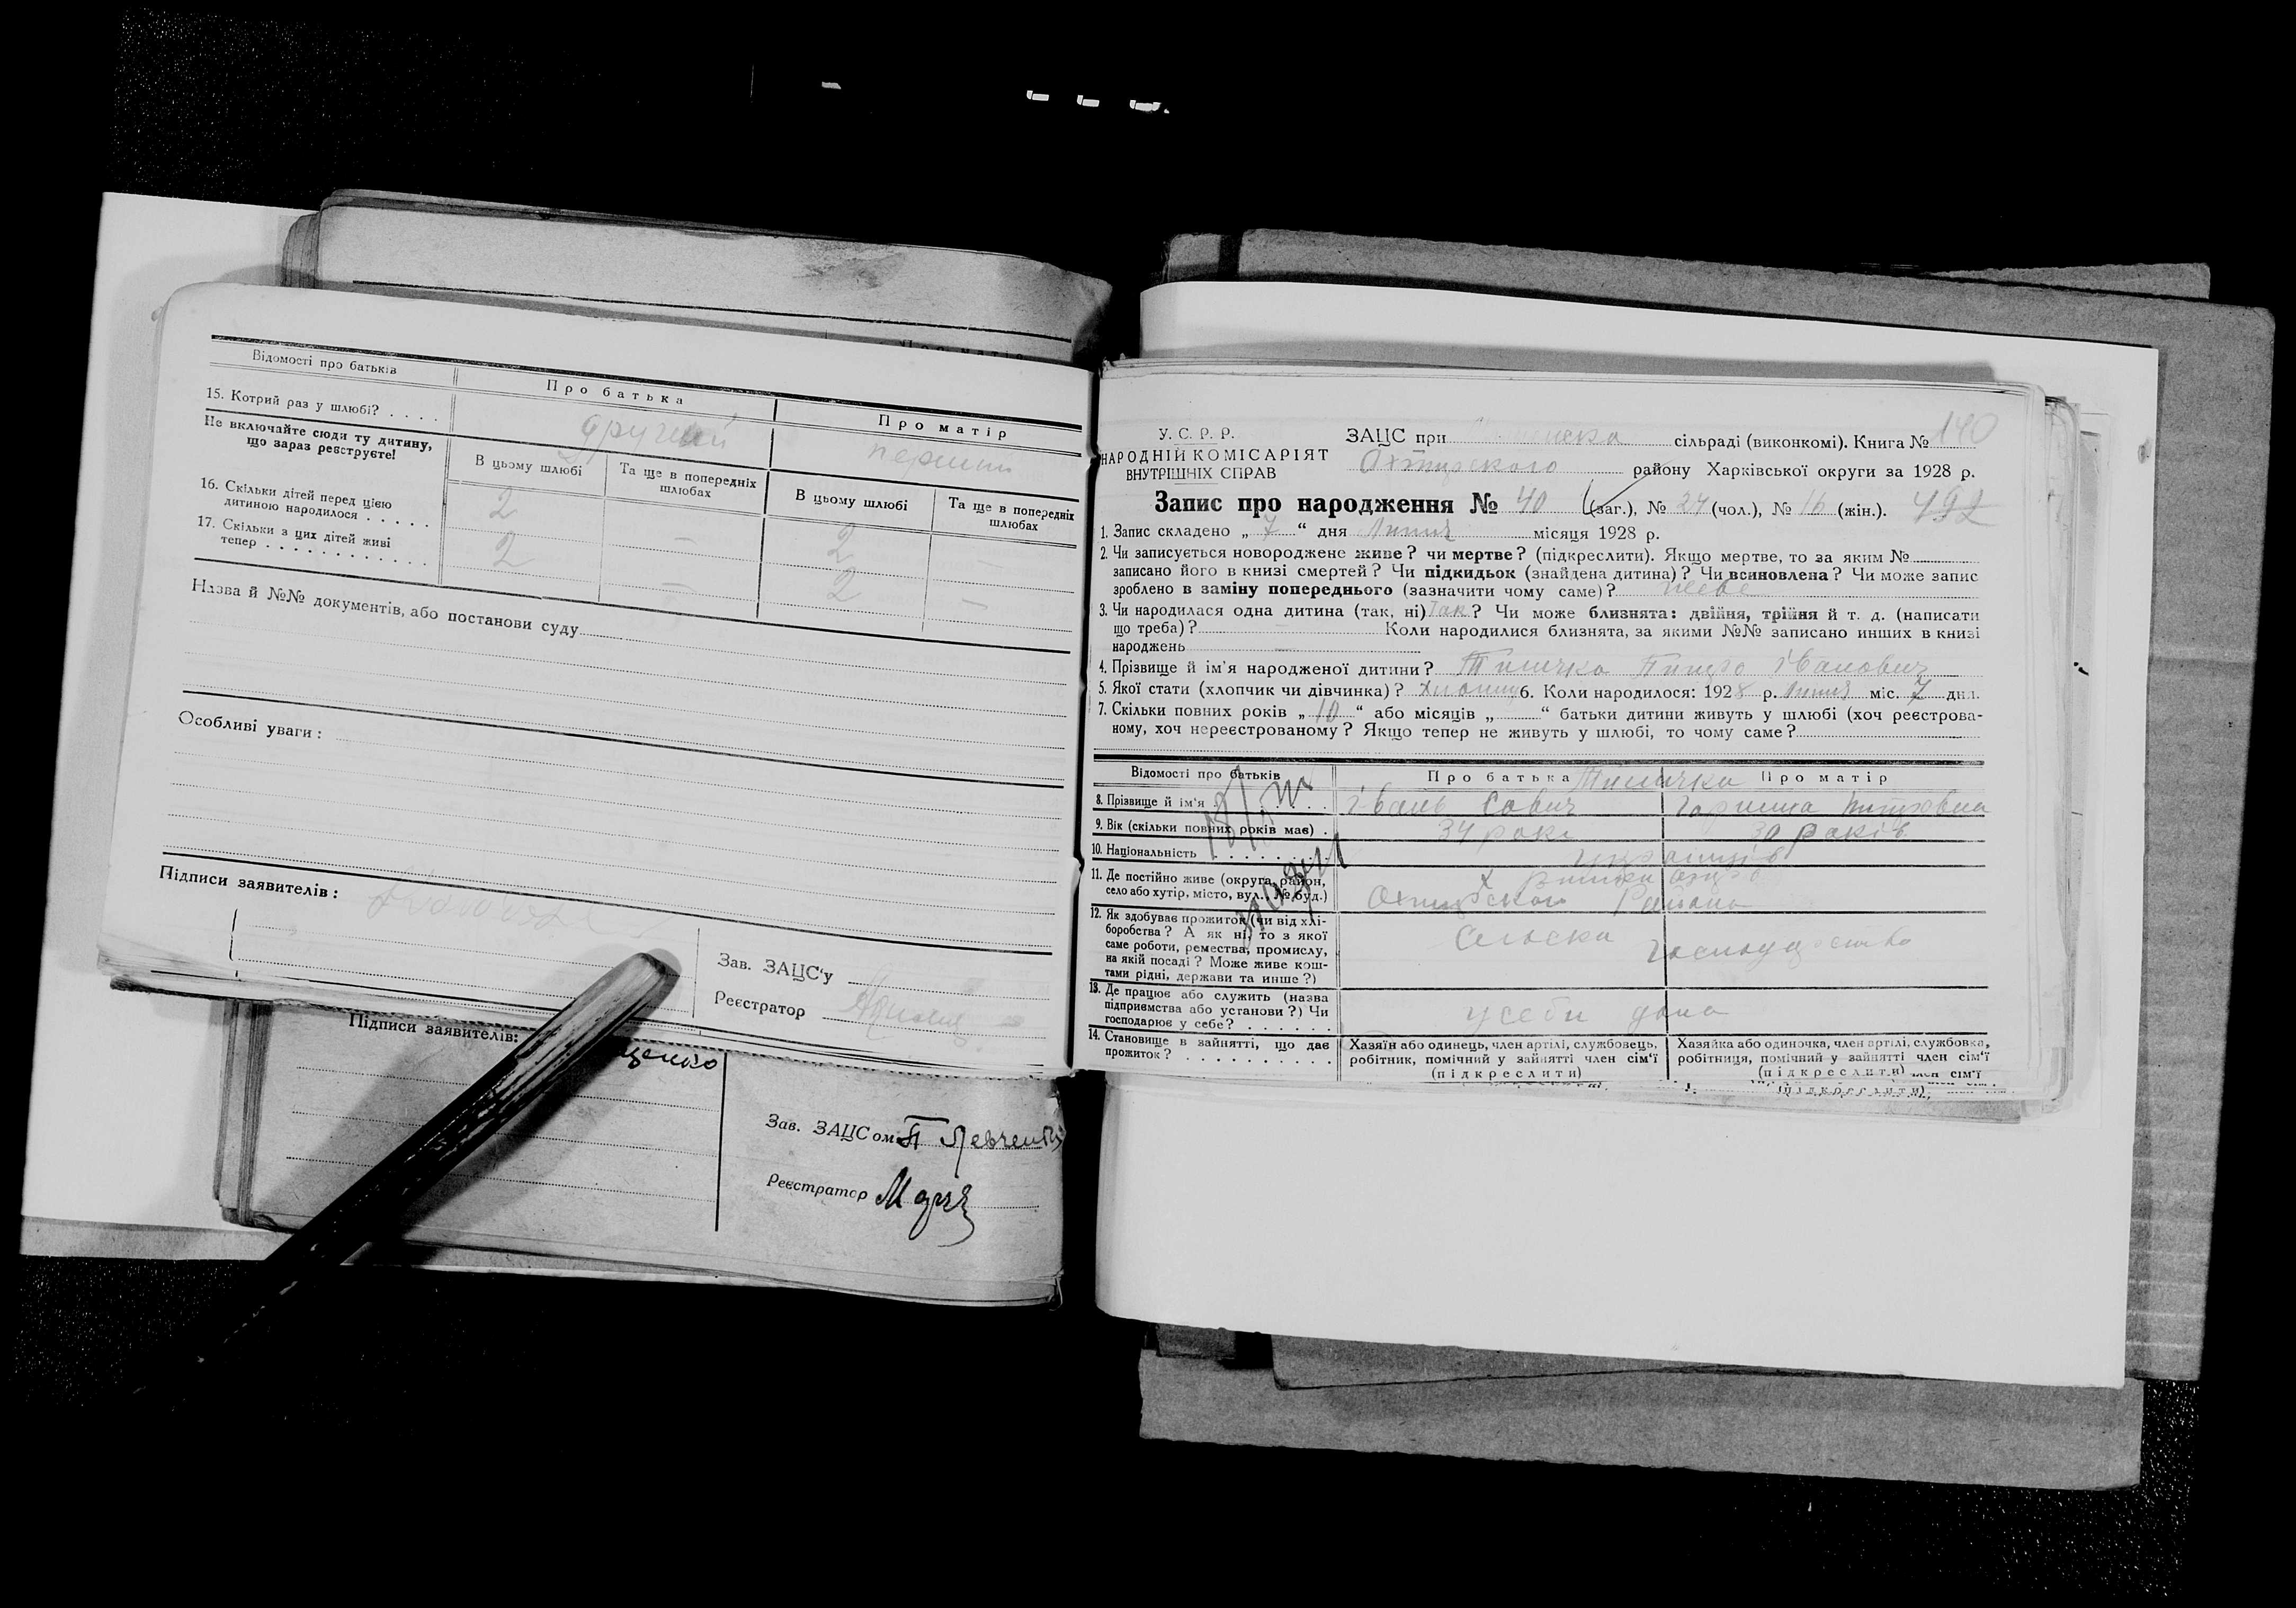 Про матір
Відомості про батьків
Про батька
Про матір
15. Котрий раз у шлюбі? . . . .
другий
перший
Не включайте сюди ту дитину,
що зараз реєструєте!
В цьому шлюбі
Та ще в попередніх
шлюбах
В цьому шлюбі
Та ще в попередніх
шлюбах
16. Скільки дітей перед цією
дитиною народилося . . . . .
2
—
2
17. Скільки з цих дітей живі
тепер . . . . . . . . . . .
2
—
2
—
Назва й №№ документів, або постанови суду
Особливі уваги:
Підписи заявителів:
Зав. ЗАЦС'у
Реєстратор
Підписи заявителів:
щенко
Зав. ЗАЦСом П Левченко
Реєстратор
У. С. Р. Р.
НАРОДНІЙ КОМІСАРІЯТ
ВНУТРІШНІХ СПРАВ
ЗАЦС при сільраді (виконкомі). Книга № 140
Охтирского району Харківської округи за 1928 р.
Запис про народження № 40 (заг.), № 24 (чол.), № 16 (жін.). 492
1. Запис складено „ 7 “ дня Липня місяця 1928 р.
2. Чи записується новороджене живе? чи мертве? (підкреслити). Якщо мертве, то за яким №
записано його в книзі смертей? Чи підкидьок (знайдена дитина)? Чи всиновлена? Чи може запис
зроблено в заміну попереднього (зазначити чому саме)? живе
3. Чи народилася одна дитина (так, ні) Так? Чи може близнята: двійня, трійня й т. д. (написати
що треба)? Коли народилися близнята, за якими №№ записано инших в книзі
народжень
4. Прізвище й ім'я народженої дитини? Іванович
5. Якої стати (хлопчик чи дівчинка)? 6. Коли народилося: 1928 р. Липня міс. 7 дня.
7. Скільки повних років „ 10 “ або місяців „ “ батьки дитини живуть у шлюбі (хоч реєстрова-
ному, хоч нереєстрованому? Якщо тепер не живуть у шлюбі, то чому саме?
Відомості про батьків
Про батька
Про матір
8. Прізвище й ім'я . . . .
Івань Савич
9. Вік (скільки повних років має) .
34 роки
30 років
10. Національність . . . . . . . .
11. Де постійно живе (округа, район,
село або хутір, місто, вул., № буд.)
Охтирского Района
12. Як здобуває прожиток (чи від хлі-
боробства? А як ні, то з якої
саме роботи, ремества, промислу,
на якій посаді? Може живе кош-
тами рідні, держави та инше?)
Сельске господарство
13. Де працює або служить (назва
підприємства або установи?) Чи
господарює у себе? . . . . . .
у себе дома
14. Становище в зайнятті, що дає
прожиток? . . . . . . . . . .
Хазяїн або одинець, член артілі, службовець,
робітник, помічний у зайнятті член сім'ї
(підкреслити)
Хазяйка або одиночка, член артілі, службовка,
робітниця, помічний у зайнятті член сім'ї
(підкреслити) член сім'ї
(підкреслити)